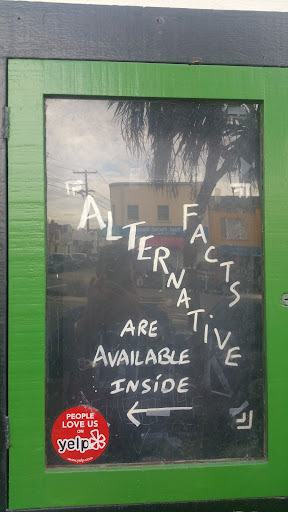 "ALTERNATIVE
FACTS"
ARE
AVAILABLE
INSIDE
←
PEOPLE
LOVE US
ON
yelp
www.yelp.com